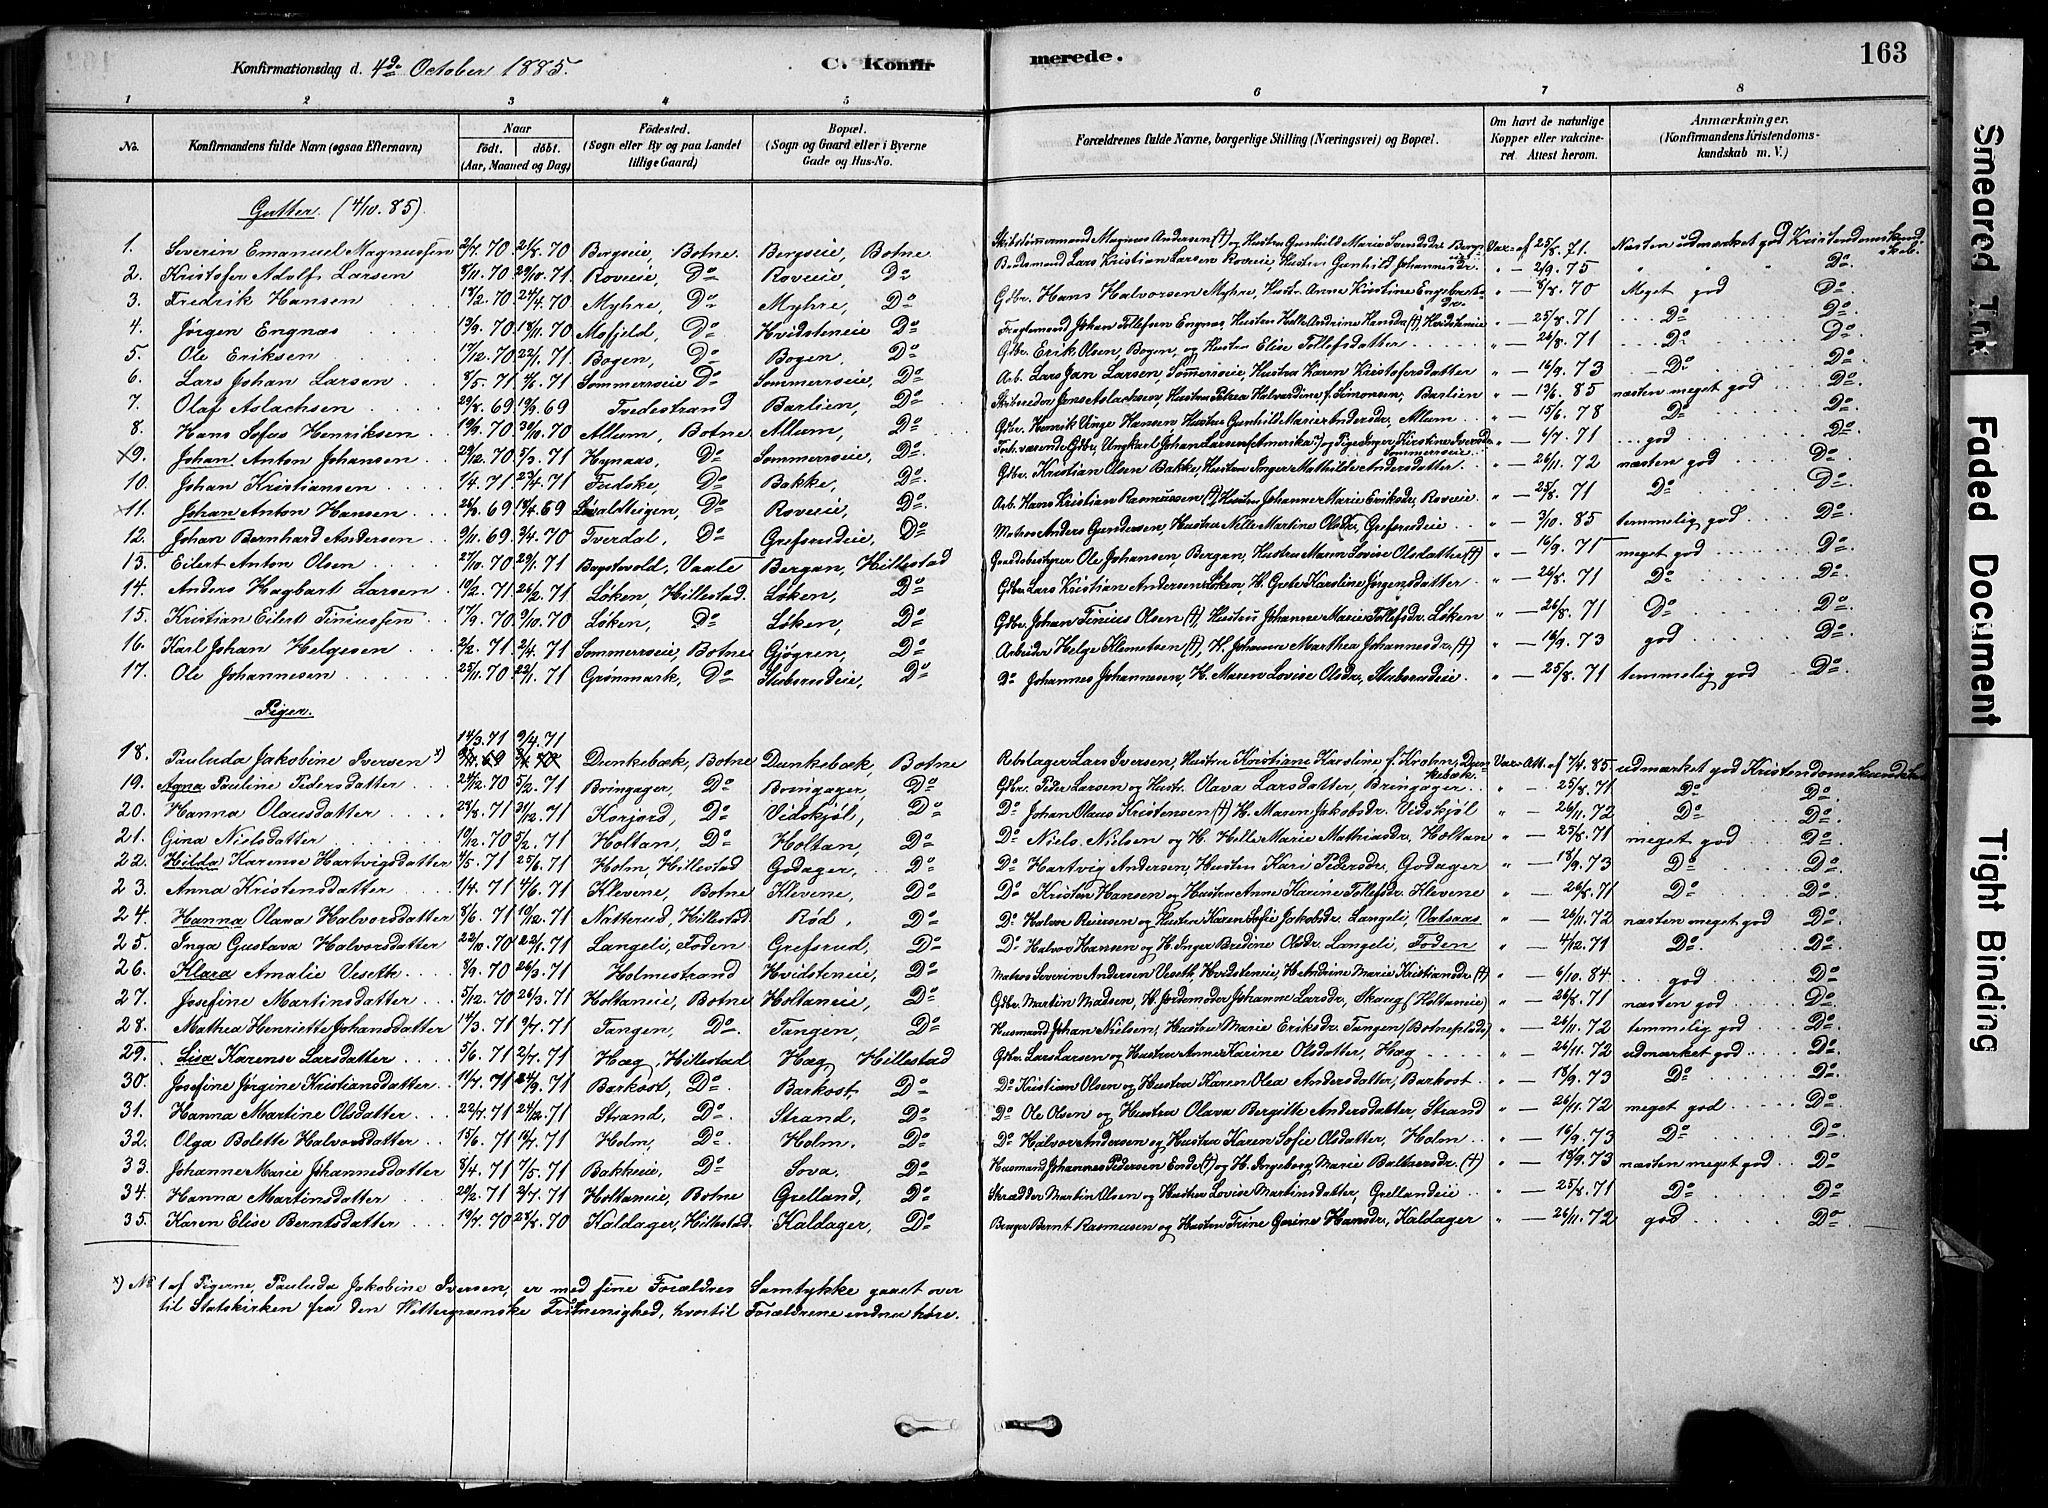 Konfirmationsdag d. 4de October 1885. C. Konfirmerede. 163
1 2 3 4 5 6 7 8
No. Konfirmandens fulde Navn (ogsaa Efternavn) Naar født. døbt. (Aar, Maaned og Dag) Fødested. (Sogn eller By og paa Landet tillige Gaard) Bopæl. (Sogn og Gaard eller i Byerne Gade og Hus-No. Forældrenes fulde Navne, borgerlige Stilling (Næringsvei) og Bopæl. Om havt de naturlige Kopper eller vakcineret Attest herom. Anmærkninger. (Konfirmandens Kristendomskundskab m. V.)
Gutter. (4/10. 85).
1. Severin Emanuel Magnussen 2/7. 70 21/8. 70 Bergseie, Botne Bergseie, Botne Skibstømmermand Magnus Andersen (†) og Hustru Gunhild Marie Svendsdr. Bergseie Vax- af 25/8. 71. Næsten udmærket god Kristendomskundskab.
2. Kristofer Adolf Larsen 8/11. 70 29/10. 71 Roveie, Do Roveie, Do Baadsmand Lars Kristian Larsen Roveie, Hustru Gunhild Johannesdr. " — 2/9. 75 " " " Do.
3. Fredrik Hansen 18/2. 70 24/4. 70 Myhre, Do Myhre, Do Gdbr. Hans Halvorsen Myhre, Hustr. Anne Kristine Engebretsdr. " — 8/8. 70 Meget god Do.
4. Jørgen Engnæs 13/9. 70 18/11. 70 Mofjeld, Do Hvidsteneie Do Fragtemand Johan Tollefsen Engnæs, Hustru Helle Andrine Hansdr. (†) Hvidsteneie " — 25/8. 71 Do Do.
5. Ole Eriksen 17/12. 70 22/1. 71 Bogen, Do Bogen, Do Gdbr. Erik Olsen, Bogen, og Hustru Elise Tollefsdatter " — 26/8. 71 Do Do.
6. Lars Johan Larsen 8/5. 71 4/6. 71 Sommerseie Do Sommerseie, Do Arb. Lars Jan Larsen, Sommerseie, Hustru Karen Kristofersdatter " — 16/9. 73 Do Do.
7. Olaf Aslachsen 29/8. 69 19/9. 69 Tvedestrand Bartien, Do Skibsreder Jens Aslachsen, Hustru Petrea Halvardine, f. Simonsen, Bartien " — 13/6. 85 næsten meget god Do.
8. Hans Sofus Henriksen 19/9. 70 30/10. 70 Allum, Botne Allum, Do Gdbr. Henrik Unge Hansen, Hustru Gunhild Marie Andersdr., Allum " — 15/6. 78 Do Do.
9. Johan Anton Johansen 29/12. 70 5/3. 71 Haanaas, Do Sommerseie, Do Forhværende Gdbr. Ungkarl Johan Larsen (Amerika?) og Pige Inger Kirstine Iversdr. Sommerseie " — 6/7. 71 god Do.
10. Johan Kristiansen 1/4. 71 23/4. 71 Fudske, Do Bakke, Do Gdbr. Kristian Olsen Bakke, Hustru Inger Mathilde Andersdatter " — 26/11. 72 næsten god Do.
11. Johan Anton Hansen 24/3. 69 18/4. 69 Do Roveie, Do Arb. Hans Kristian Rasmussen (†), Hustru Johanne Marie Eriksdr., Roveie " — 25/8. 71 Do Do.
12. Johan Bernhard Andersen 9/11. 69 3/4. 70 Tverdal, Do Grefsrudeie, Do Matros Anders Gundersen, Hustru Nille Martine Olsdr., Grefsrudeie " — 3/10. 85 temmelig god Do.
13. Eilert Anton Olsen 27/10. 70 29/1. 71 Bagstevold, Vaale Bergan, Hillestad Gaardsbestyrer Ole Johansen, Bergan, Hustru Maren Lovise Olsdatter (†) " — 16/9. 71 meget god Do.
14. Anders Hagbart Larsen 10/2. 71 26/2. 71 Løken, Hillestad. Løken, Do Gdbr. Lars Kristian Andersen Løken, H. Grete Karoline Jørgensdatter " — 26/8. 71 Do Do.
15. Kristian Eilert Tiniussen 17/9. 70 9/10. 70 Løken, Do Løken, Do Gdbr. Johan Tinius Olsen (†), Hustru Johanne Marie Tollefsdr. Løken " — 26/8. 71 Do Do.
16. Karl Johan Helgesen 2/2. 71 2/4. 71 Sommerseie, Botne Gjøgren, Do Arbeider Helge Klemetsen (†), H. Johanne Marthea Johannesdr. (†) " — 16/9. 73 god Do.
17. Ole Johannesen 25/11. 70 22/1. 71 Grønmark, Do Stubsrudeie, Do Do Johannes Johannesen, H. Maren Lovise Olsdr., Stubsrudeie " — 25/8. 71 temmelig god Do.
Piger.
14/3. 71 9/4. 71
18. Pauluda Jakobine Iversen x) Dunkebæk, Botne Dunkebæk, Botne Rebslager Lars Iversen, Hustru Kristiane Karoline f. Krohn, Dunkebæk Vax-Att. af 7/4. 85 udmærket god Kristendomskundskab
19. Agna Pauline Pedersdatter 24/12. 70 5/2. 71 Bringager, Do Bringager, Do Gdbr. Peder Larsen og Hustr. Olava Larsdatter, Bringager " — 25/8. 71 Do Do.
20. Hanna Olausdatter 28/8. 71 31/12. 71 Korjord, Do Vidskjøl, Do Do Johan Olaus Kristensen (†) H. Maren Jakobsdr. Vidskjøl " — 26/11. 72 Do Do.
21. Gina Nielsdatter 10/2. 71 5/2. 71 Holtan, Do Holtan, Do Do Niels Nielsen og H. Helle Marie Mathiasdr. Holtan " — 25/8. 71 meget god Do.
22. Hilda Karense Hartvigsdatter 4/5. 71 25/6. 71 Holm, Hillestad Godager, Do Do Hartvig Andersen, Hustru Kari Pedersdr. Godager " — 18/9. 73 Do Do.
23. Anna Kristensdatter 1/4. 71 4/6. 71 Klevene, Botne Klevene, Do Do Kristen Hansen og Hustru Anne Karine Tollefsdr. Klevene " — 26/8. 71 Do Do.
24. Hanna Olava Halvorsdatter 8/6. 71 10/12. 71 Natterud, Hillestad. Rød, Do Do Halvor Reiersen og Hustru Karen Sofie Jakobsdr. Langeli, Vatsaas " — 26/11. 72 næsten meget god Do.
25. Inga Gustava Halvorsdatter 23/10. 70 22/1. 71 Langeli, Foden Grefsrud, Do Do Halvor Hansen og H. Inger Bredine Olsdr. Langeli, Foden " — 4/12. 71 Do Do.
26. Klara Amalie Veseth 8/9. 70 26/3. 71 Holmestrand Hvidsteneie, Do Matros Severin Andersen Veseth, Hvidsteneie, H. Andrine Marie Kristiansdr. (†) " — 6/10. 84 god Do.
27. Josefine Martinsdatter 5/12. 70 26/3. 71 Holtaneie, Botne Holtaneie, Do Gdbr. Martin Madsen, H. Jordemoder Johanne Larsdr., Skaug (Holtaneie) " — 26/8. 71 næsten god Do.
28. Mathea Henriette Johansdatter 14/3. 71 9/7. 71 Tangen, Do Tangen, Do Husmand Johan Nielsen, Hustru Marie Eriksdr. Tangen (Botneplads) " — 26/11. 72 temmelig god Do.
29. Lisa Karense Larsdatter 5/6. 71 2/7. 71 Hæg, Hillestad Hæg, Hillestad Gdbr. Lars Larsen og Hustru Anne Karine Olsdatter, Hæg " — 26/11. 72 udmærket god Do.
30. Josefine Jørgine Kristiansdatter 11/7. 71 24/9. 71 Barkost, Do. Barkost, Do Do Kristian Olsen og Hustru Karen Olea Andersdatter, Barkost " — 18/9. 73 Do Do.
31. Hanna Martine Olsdatter 22/7. 71 24/12. 71 Strand, Do Strand, Do Do Ole Olsen og Hustru Olava Bergitte Andersdatter, Strand " — 26/11. 72 meget god Do.
32. Olga Bolette Halvorsdatter 15/6. 71 16/7. 71 Holm, Do Holm. Do Do Halvor Andersen og Hustru Karen Sofie Olsdatter, Holm " — 16/9. 73 Do Do.
33. Johanne Marie Johannesdatter 8/4. 71 7/5. 71 Bakkeie, Do Sova, Do Husmand Johannes Pedersen Ende (†) og H. Ingeborg Marie Baltzersdr. (†) " — 18/9. 73 næsten meget god Do
34. Hanna Martinsdatter 20/2. 71 2/7. 71 Holtaneie, Botne Grelland, Do Skrædder Martin Olsen og Hustru Lovise Martinsdatter, Grellandeie " — 25/8. 71 Do Do.
35. Karen Elise Berntsdatter 19/7. 70 28/8. 70 Kaldager, Hillestad. Kaldager, Do Bruger Bernt Rasmussen og Hustru Trine Gurine Hansdr., Kaldager " — 26/11. 72 god Do
x) No 1 af Pigerne, Pauluda Jakobine Iversen, er med sine Forældres Samtykke gaaet over
til Statskirken fra den Wettergrenske Frimenighed, hvortil Forældrene endnu høre.
Smeared Ink
Faded Document
Tight Binding